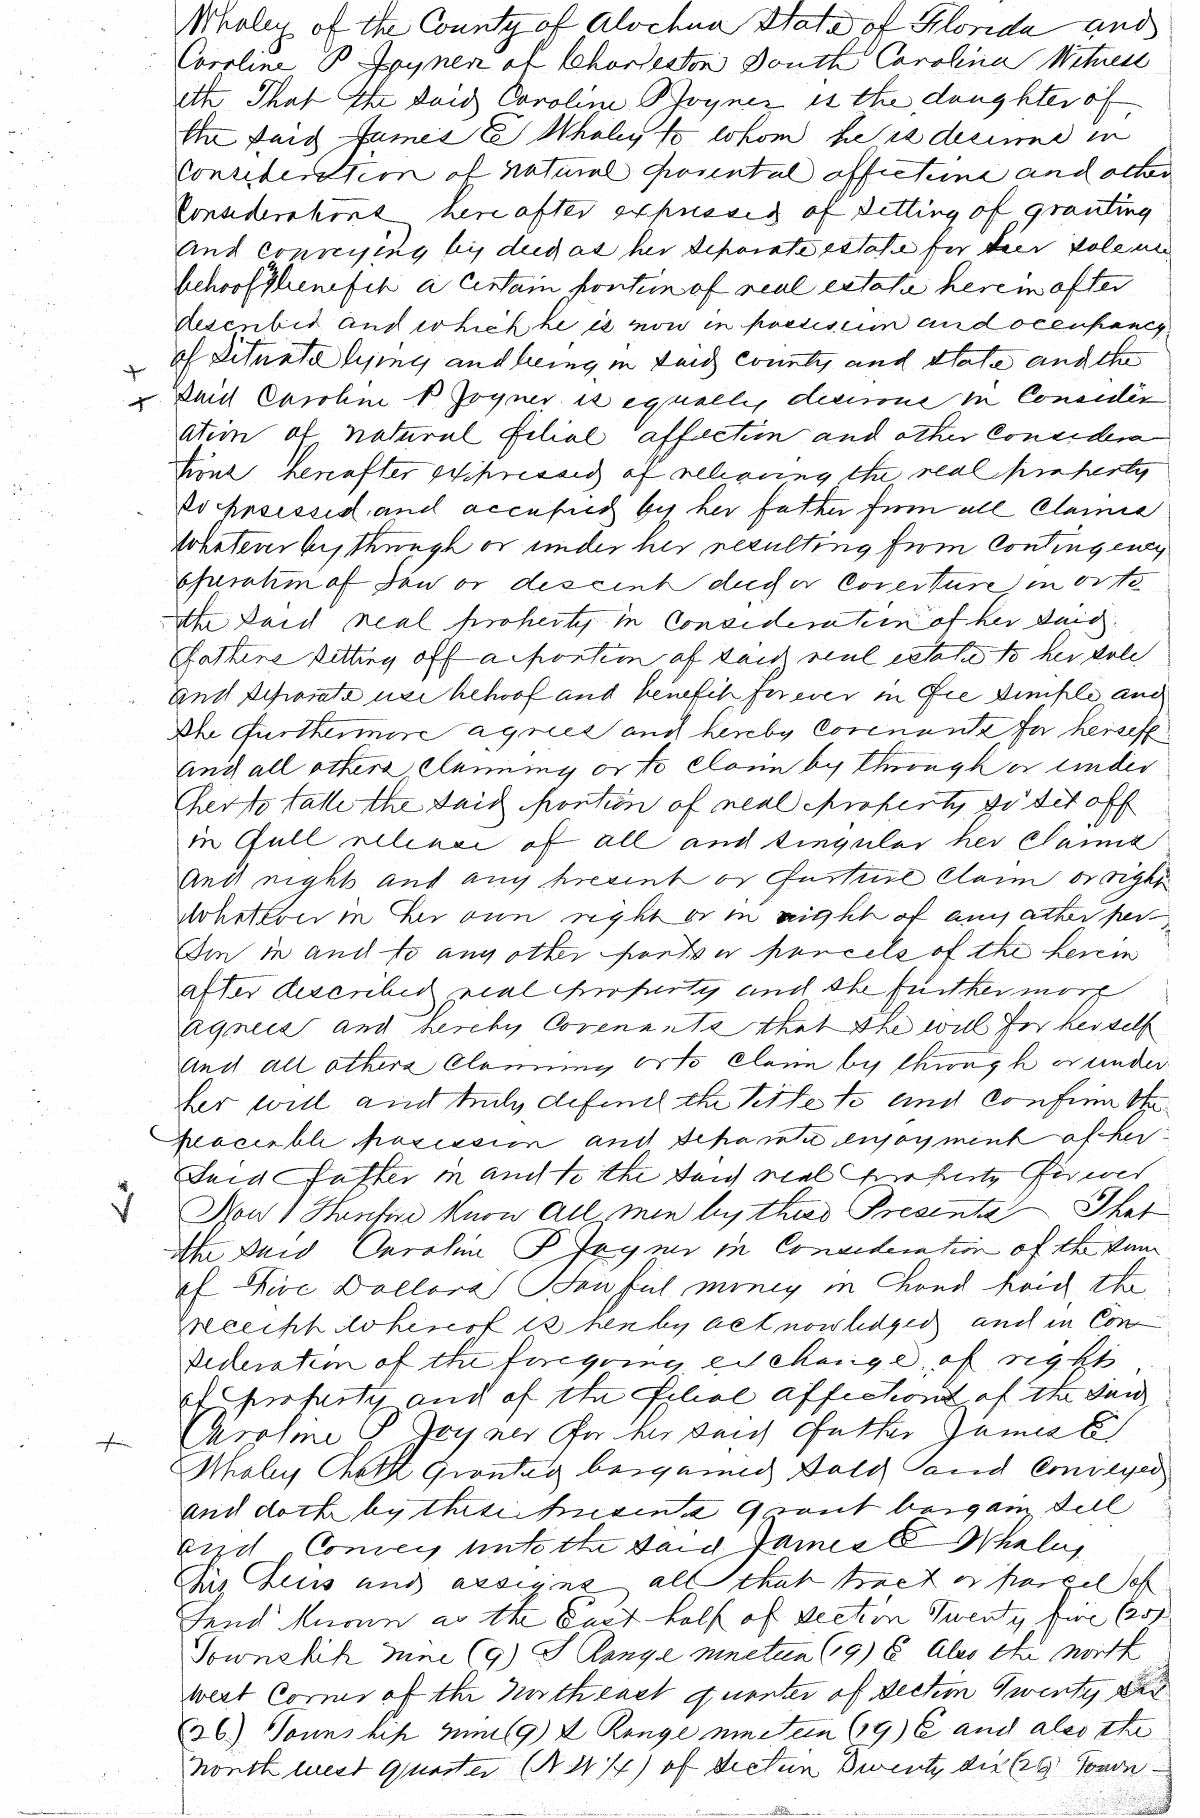 Whaley of the County of Alochua State of Florida and
Caroline P Joyner of Charleston South Carolina Witness
eth That the said Caroline P Joyner is the daughter of
the said James E Whaley to whom he is desirous in
consideration of natural parental affections and other
Considerations here after expressed of setting of granting
and conveying by deed as her separate estate for her sole use
behoof & benefit a certain portion of real estate herein after
described and which he is now in possession and occupancy
of situate lying and being in said county and state and the
said Caroline P Joyner is equally desirous in Consider
ation of natural filial affection and other Considera
tions hereafter expressed of releaving the real property
so possessed and occupied by her father from all Claims
whatever by through or under her resulting from Contingency
operation of Law or descent deed or Coverture in or to
the said real property in Consideration of her said
fathers setting off a portion of said real estate to her sole
and separate use behoof and benefit forever in fee simple and
she furthermore agrees and hereby Covenants for herself
and all others claiming or to claim by through or under
her to take the said portion of real property so set off
in full release of all and singular her Claims
and rights and any present or furture claim or right
whatever in her own right or in right of any other per-
son in and to any other parts or parcels of the herein
after described real property and she furthermore
agrees and hereby Covenants that she will for herself
and all others claiming or to claim by through or under
her will and truly defend the title to and confirm the
peacerble posession and separate enjoyment of her
said father in and to the said real property forever
Now Therefore Know All men by these Presents That
the said Caroline P Joyner in Consideration of the sum
of Five Dollars Lawful money in hand paid the
receipt whereof is hereby acknowledged and in Con
sederation of the foregoing exchange of rights
of property and of the filial affections of the said
Caroline P Joyner for her said father James E
Whaley Hath granted bargained sold and conveyed
and doth by these presents grant bargain sell
and Convey unto the said James E Whaley
his heirs and assigns all that tract or parcel of
Land Known as the East half of section Twenty five (25)
Township nine (9) S Range nineteen (19) E Also the north
west Corner of the North east quarter of section Twenty six
(26) Township nine (9) S Range nineteen (19) E and also the
north west quarter (N W 1/4) of section Twenty six (26) Town-